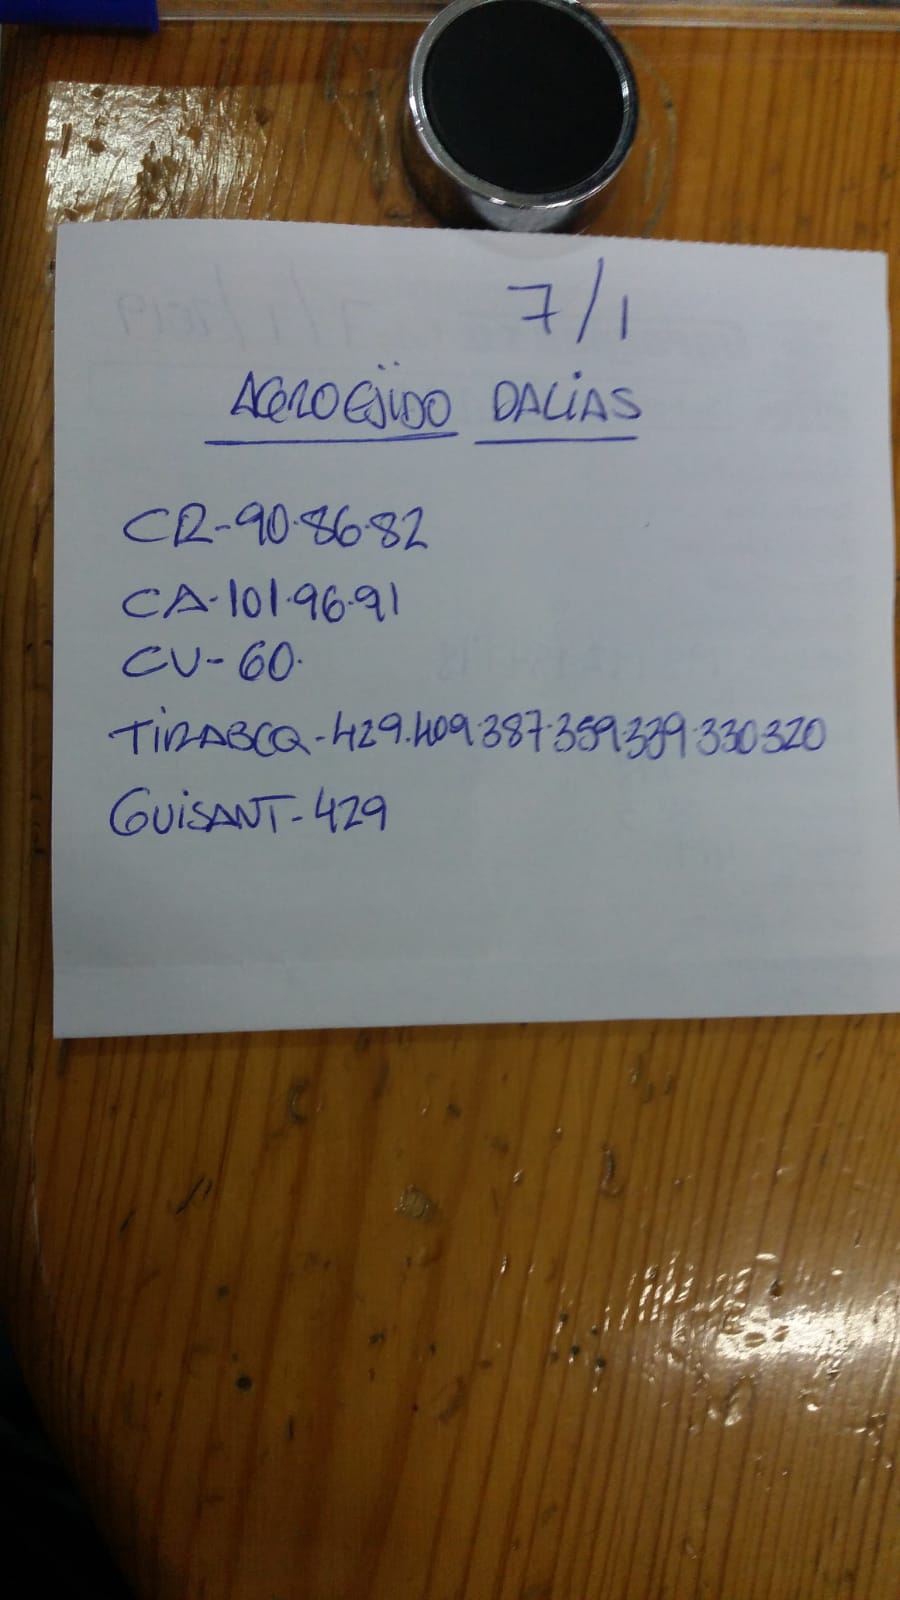 7/1
AGROEJIDO DALIAS
CR-90.86.82
CA-101.96.91
CU-60.
TIRABEQ-429.409.387.359.339.330.320
GUISANT-429